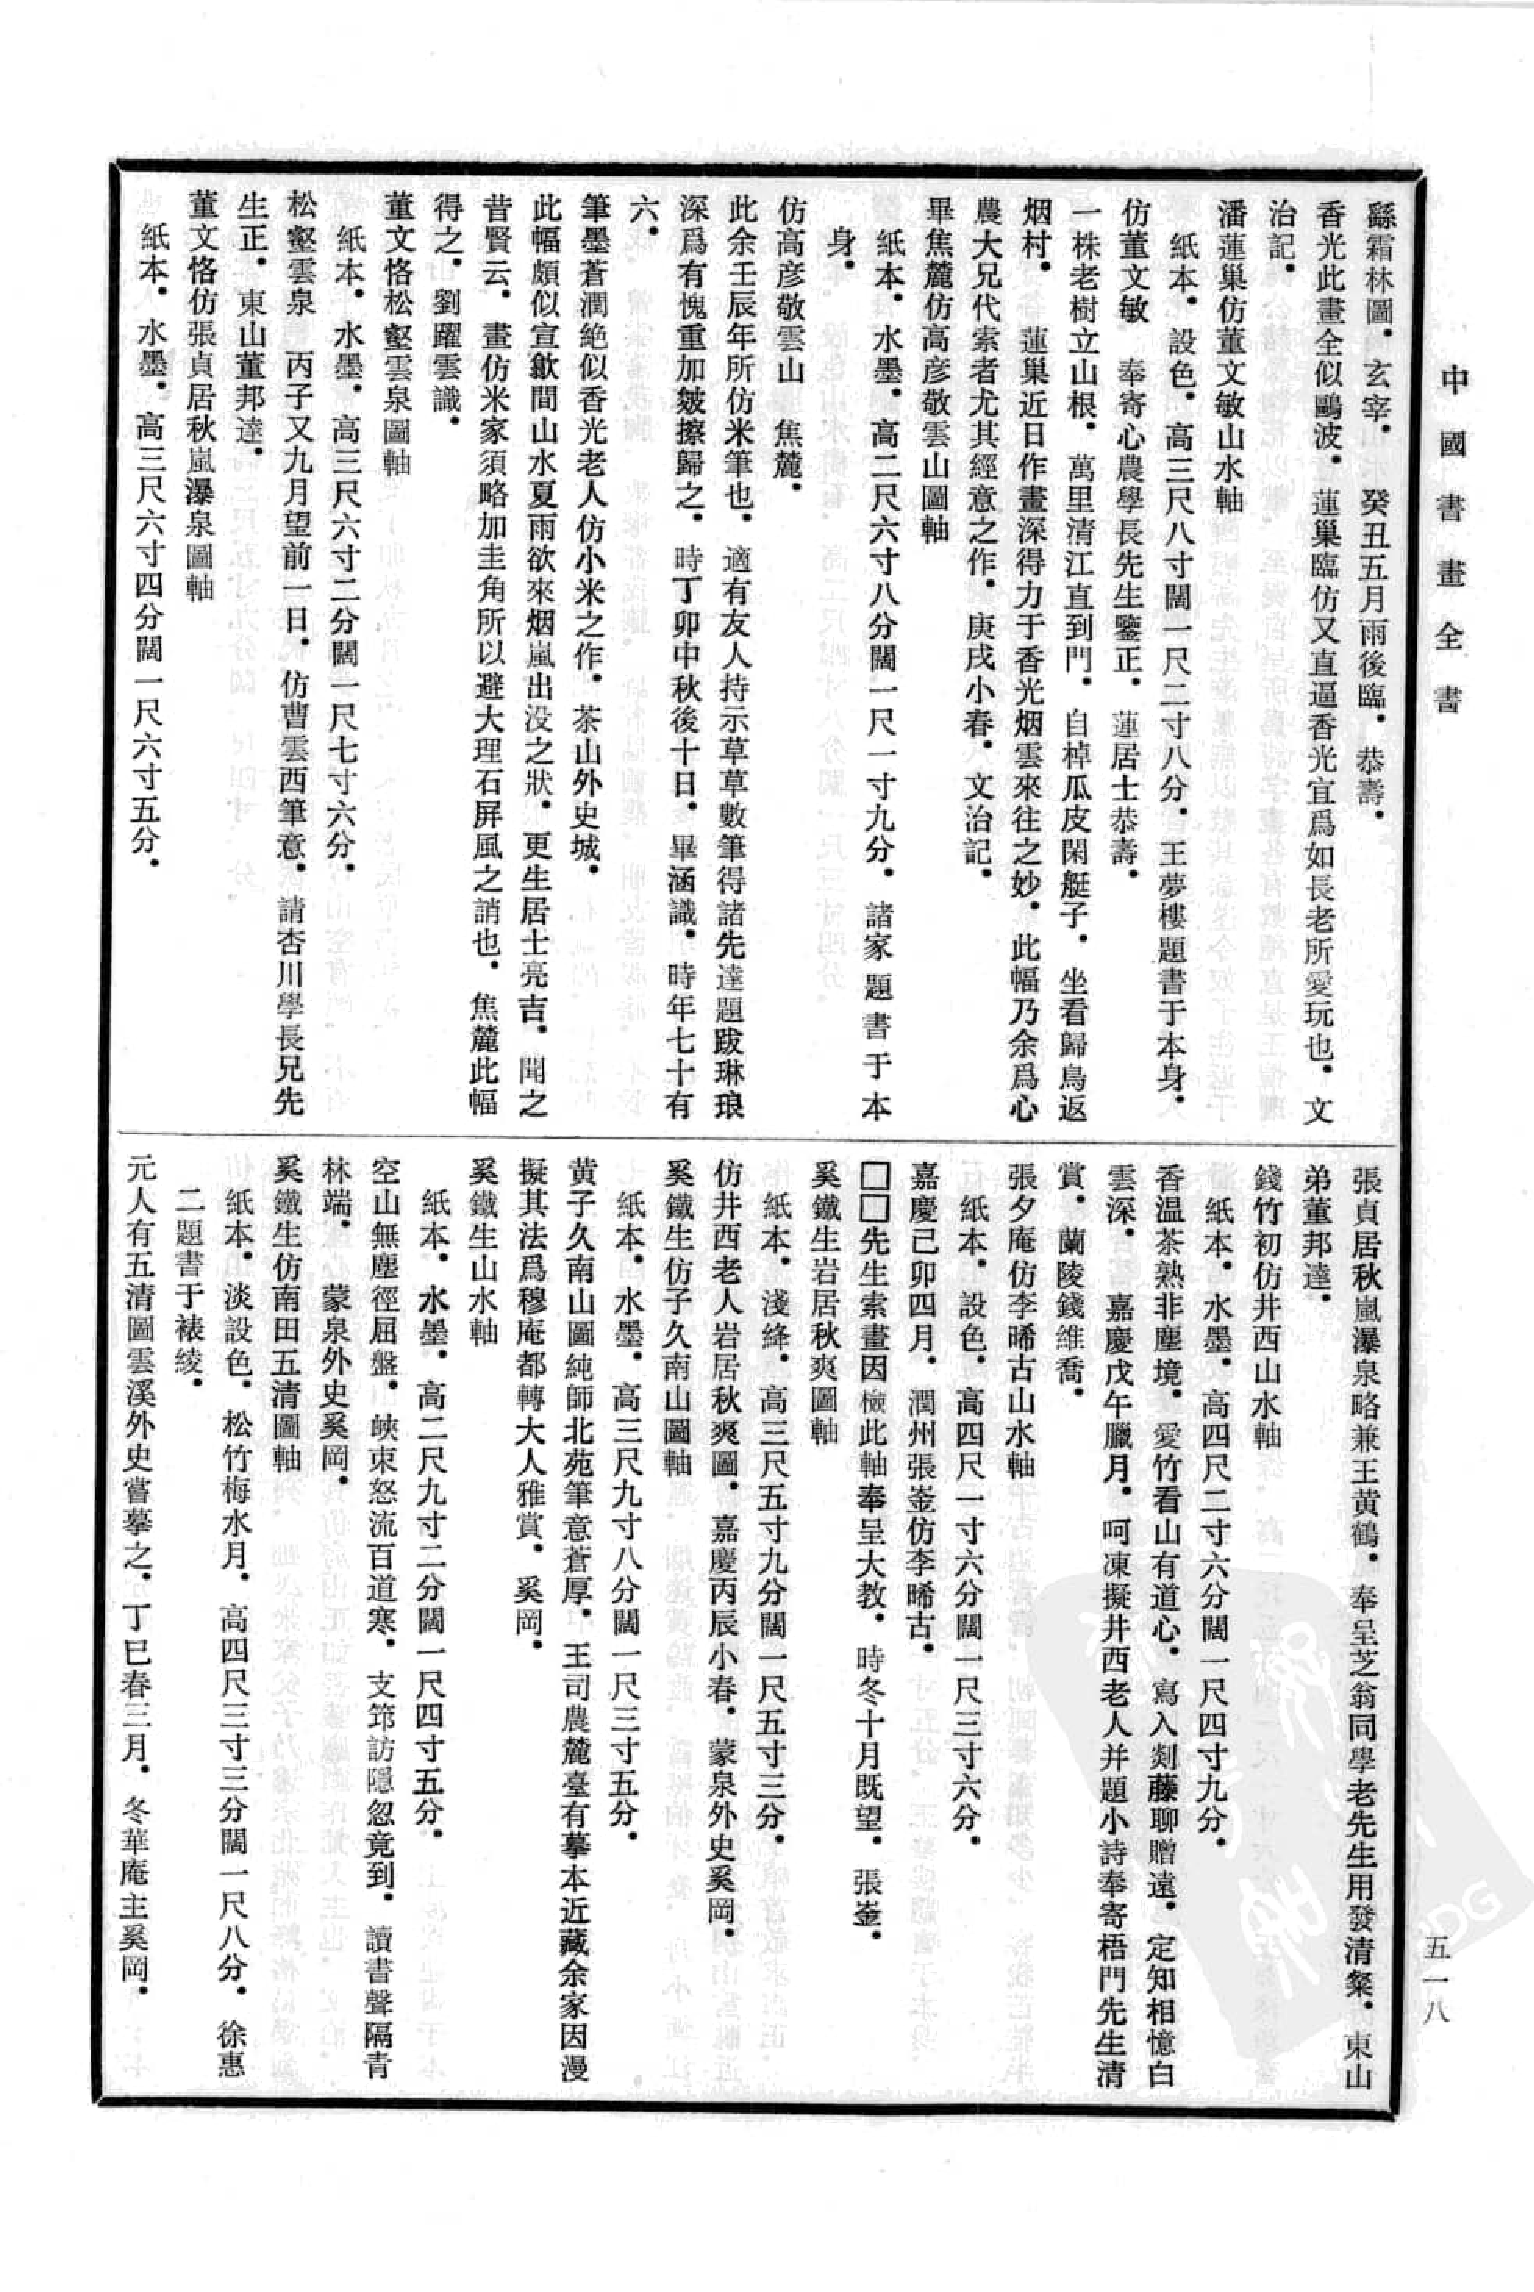 中國書畫全書
繇霜林圖．玄宰．　癸丑五月雨後臨．恭壽．
香光此畫全似鷗波．蓮巢臨仿又直逼香光宜爲如長老所愛玩也．文
治記．
潘蓮巢仿董文敏山水軸
紙本．設色．高三尺八寸闊一尺二寸八分．王夢樓題書于本身．
仿董文敏　奉寄心農學長先生鑒正．蓮居士恭壽．
一株老樹立山根．萬里清江直到門．自棹瓜皮閑艇子．坐看歸鳥返
烟村．　蓮巢近日作畫深得力于香光烟雲來往之妙．此幅乃余爲心
農大兄代索者尤其經意之作．庚戌小春．文治記．
畢焦麓仿高彦敬雲山圖軸
紙本．水墨．高二尺六寸八分闊一尺一寸九分．諸家題書于本
身．
仿高彦敬雲山　焦麓．
此余壬辰年所仿米筆也．適有友人持示草草數筆得諸先達題跋琳琅
深爲有愧重加皴擦歸之．時丁卯中秋後十日．畢涵識．時年七十有
六．
筆墨蒼潤絶似香光老人仿小米之作．茶山外史城．
此幅頗似宣歙間山水夏雨欲來烟嵐出没之狀．更生居士亮吉．聞之
昔賢云．畫仿米家須略加圭角所以避大理石屏風之誚也．焦麓此幅
得之．劉躍雲識．
董文恪松壑雲泉圖軸
紙本．水墨．高三尺六寸二分闊一尺七寸六分．
松壑雲泉　丙子又九月望前一日．仿曹雲西筆意．請杏川學長兄先
生正．東山董邦達．
董文恪仿張貞居秋嵐瀑泉圖軸
紙本．水墨．高三尺六寸四分闊一尺六寸五分．
張貞居秋嵐瀑泉略兼王黄鶴．奉呈芝翁同學老先生用發清粲．東山
弟董邦達．
錢竹初仿井西山水軸
紙本．水墨．高四尺二寸六分闊一尺四寸九分．
香温茶熟非塵境．愛竹看山有道心．寫入剡藤聊贈遠．定知相憶白
雲深．　嘉慶戊午臘月．呵凍擬井西老人并題小詩奉寄梧門先生清
賞．蘭陵錢維喬．
張夕庵仿李晞古山水軸
紙本．設色．高四尺一寸六分闊一尺三寸六分．
嘉慶己卯四月．潤州張崟仿李晞古．
□□先生索畫因檢此軸奉呈大教．時冬十月既望．張崟．
奚鐵生岩居秋爽圖軸
紙本．淺絳．高三尺五寸九分闊一尺五寸三分．
仿井西老人岩居秋爽圖．嘉慶丙辰小春．蒙泉外史奚岡．
奚鐵生仿子久南山圖軸
紙本．水墨．高三尺九寸八分闊一尺三寸五分．
黄子久南山圖純師北苑筆意蒼厚．王司農麓臺有摹本近藏余家因漫
擬其法爲穆庵都轉大人雅賞．奚岡．
奚鐵生山水軸
紙本．水墨．高二尺九寸二分闊一尺四寸五分．
空山無塵徑屈盤．峽束怒流百道寒．支筇訪隱忽竟到．讀書聲隔青
林端．　蒙泉外史奚岡．
奚鐵生仿南田五清圖軸
紙本．淡設色．松竹梅水月．高四尺三寸三分闊一尺八分．徐惠
二題書于裱綾．
元人有五清圖雲溪外史嘗摹之．丁巳春三月．冬華庵主奚岡．
五一八